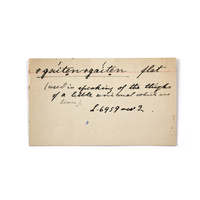 ogáïtenogáïten flat
(used in speaking of the thighs
of a little animal which are
L-6959 rev 2.